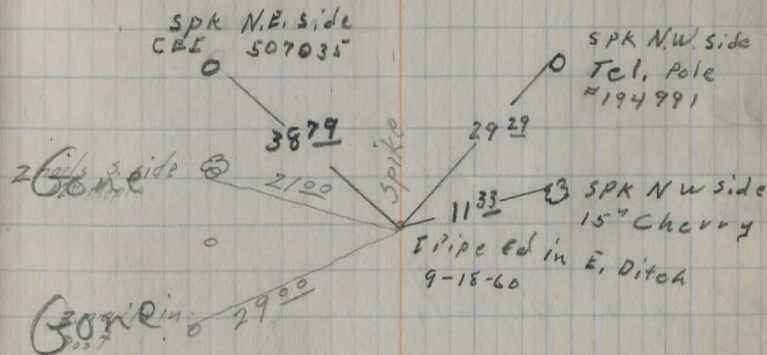 spk N.E. side
CEI 507035
SPK N.W. side
Tel. Pole
#194991
38 79
29 29
spike
nails s. side
Gone
21 00
11 33
SPK NW side
15" Cherry
I Pipe fd in E. Ditch
9-18-60
Gone
29 00